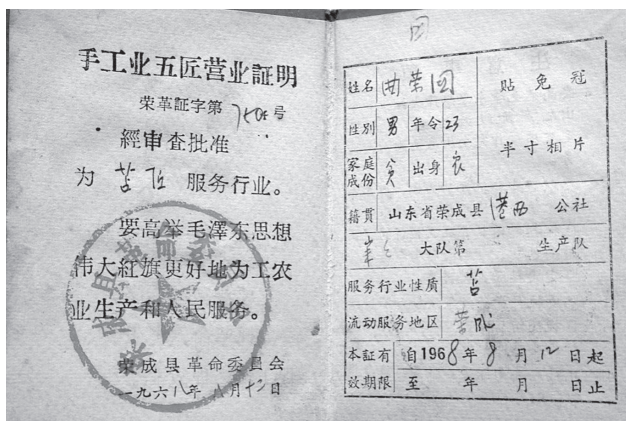 手工业五匠营业証明
荣革証字第 号
經审查批准
为 苫匠 服务行业。
要高举毛澤东思想
伟大紅旗更好地为工农
业生产和人民服务。
荣成县革命委員会
一九六八年八月十二日
姓名 曲荣
性别 男 年令 23
家庭成份 贫 出身 农
貼免冠
半寸相片
籍貫 山东省荣成县 港西 公社
大队第 生产队
服务行业性质 苫
流动服务地区 荣成
本証有 自1968年8月12日起
效期限 至 年 月 日止